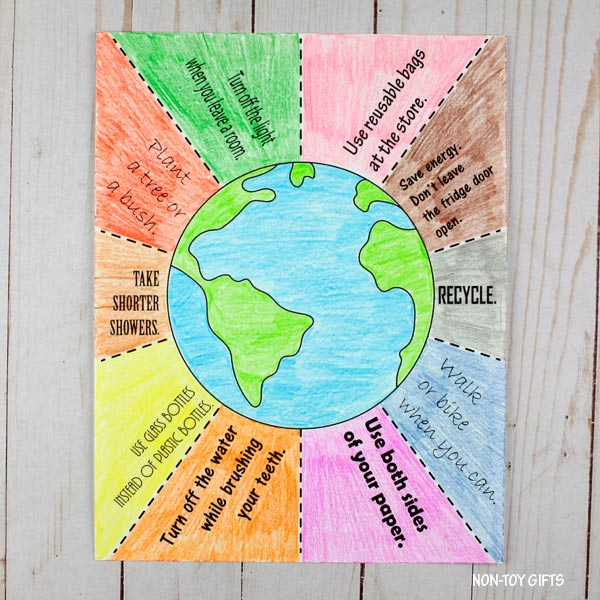 Turn off the light
when you leave a room.
Use reusable bags
at the store.
Save energy.
Don't leave
the fridge door
open.
RECYCLE.
Walk
or bike
when you can.
Use both sides
of your paper.
Turn off the water
while brushing
your teeth.
USE GLASS BOTTLES
INSTEAD OF PLASTIC BOTTLES.
TAKE
SHORTER
SHOWERS.
Plant
a tree or
a bush.
NON-TOY GIFTS